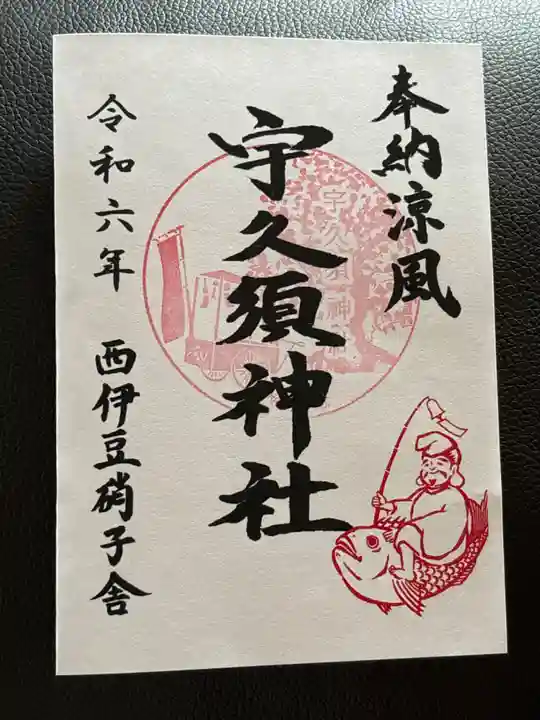 奉納涼風
宇久須神社
令和六年 西伊豆硝子舎
宇久須神社